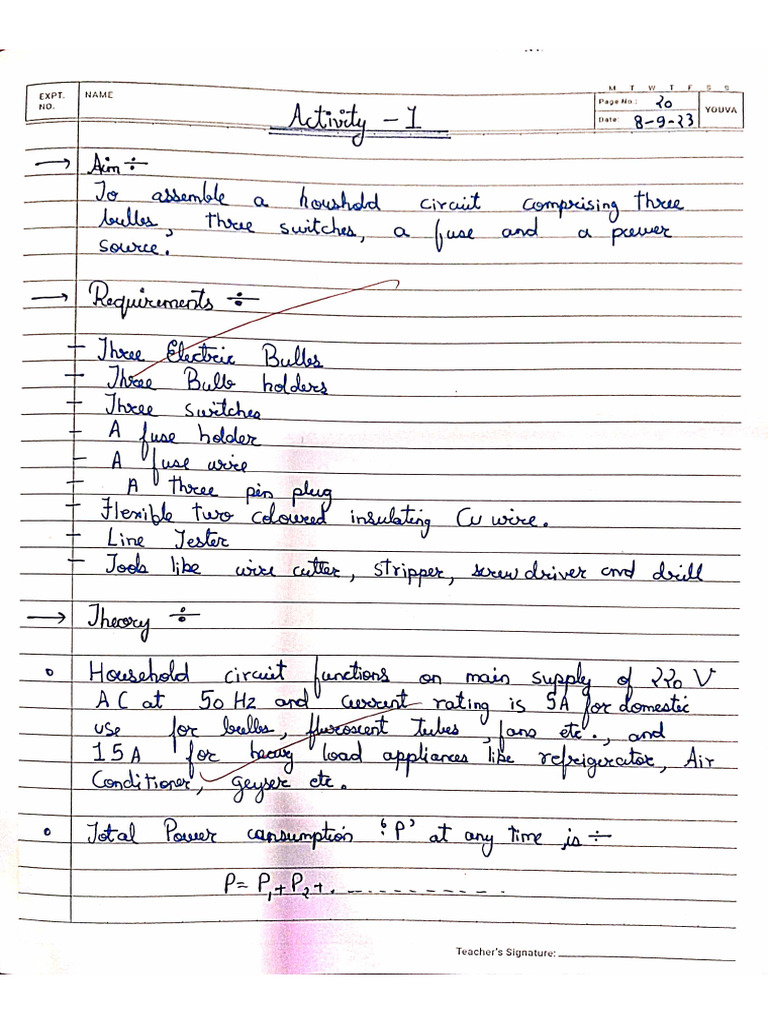 EXPT. NO.
NAME
Activity - 1
M T W T F S S
Page No.: 20
Date: 8-9-23
YOUVA
→ Aim ÷
To assemble a houshold circuit comprising three
bulbs, three switches, a fuse and a power
source.
→ Requirements ÷
- Three Electric Bulbs
- Three Bulb holders
- Three switches
- A fuse holder
- A fuse wire
- A three pin plug
- Flexible two coloured insulating Cu wire.
- Line Tester
- Tools like wire cutter, stripper, screw driver and drill
→ Theory ÷
o Household circuit functions on main supply of 220 V
AC at 50 Hz and current rating is 5A for domestic
use for bulbs, fluroscent tubes, fans etc., and
15A for heavy load appliances like refrigerator, Air
Conditioner, geyser etc.
o Total Power consumption 'P' at any time is ÷
P = P1 + P2 + . - - - - - - - - - .
Teacher's Signature: